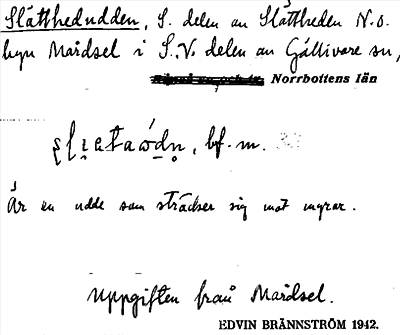 Slåttheduddens, S. delen av Slåttheden N.O.
byn Mårdsel i S.V. delen av Gällivare sn,
Norrbottens län
bf. m.
Är en udde som sträcker sig mot myrar.
Uppgiften från Mårdsel.
EDVIN BRÄNNSTRÖM 1942.